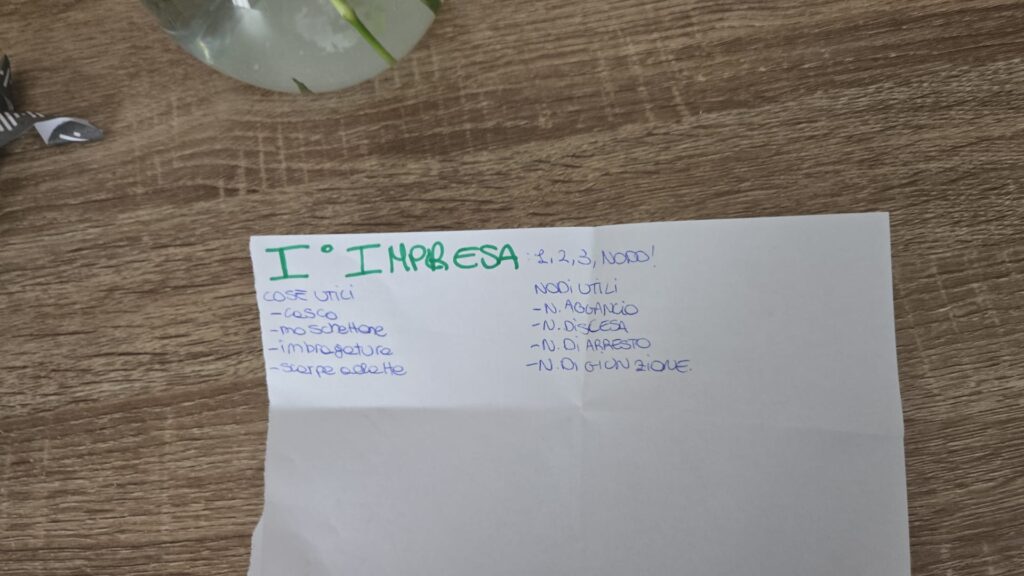 I° IMPRESA: 1, 2, 3, NODO!
COSE UTILI
- casco
- moschettone
- imbragatura
- scarpe adatte
NODI UTILI
- N. AGGANCIO
- N. DISCESA
- N. DI ARRESTO
- N. DI GIUNZIONE.